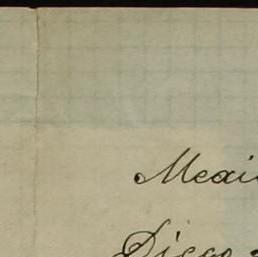 Mexi
Diego